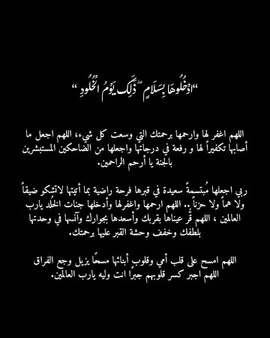 “ادْخُلُوهَا بِسَلَامٍ ۖ ذَٰلِكَ يَوْمُ الْخُلُودِ “
اللهم اغفر لها وارحمها برحمتك التي وسعت كل شيء، اللهم اجعل ما
أصابها تكفيراً لها و رفعة في درجاتها واجعلها من الضاحكين المستبشرين
بالجنة يا أرحم الراحمين.
ربي اجعلها مُبتسمةً سعيدة في قبرها فرحة راضية بما أتيتها لاتشكو ضيقاً
ولا هماً ولا حزناً .. اللهم ارحمها واغفرلها وأدخلها جنات الخُلد يارب
العالمين ، اللهم قُر عيناها بقربك وأسعدها بجوارك وآنسها في وحدتها
بلطفك وخفف وحشة القبر عليها برحمتك.
اللهم امسح على قلب أمي وقلوب أبنائها مسحًا يزيل وجع الفراق
اللهم اجبر كسر قلوبهم جبرًا انت وليه يارب العالمين.